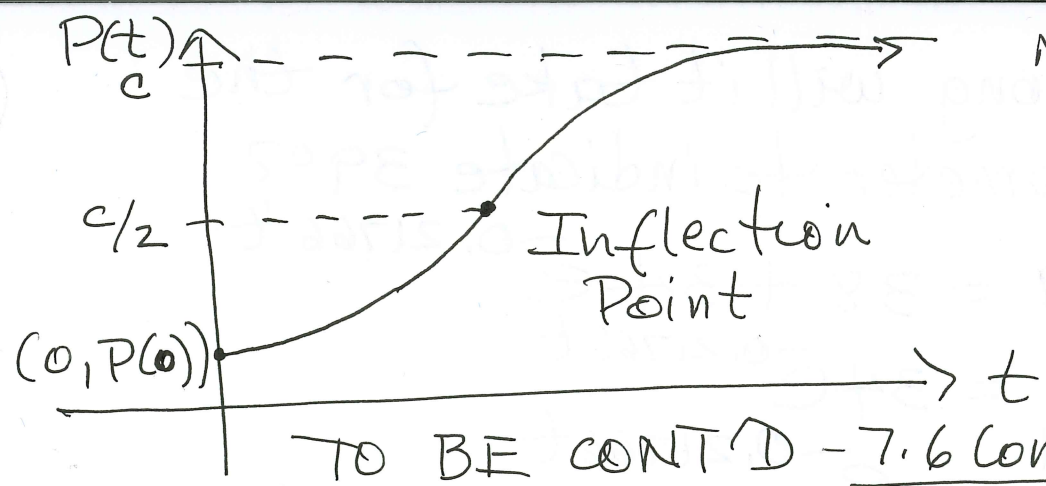 P(t)
c
c/2
Inflection
Point
(0, P(0))
t
TO BE CONT'D - 7.6 Con